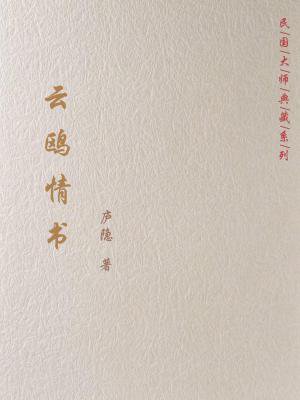 民国大师典藏系列
云鸥情书
庐隐 著